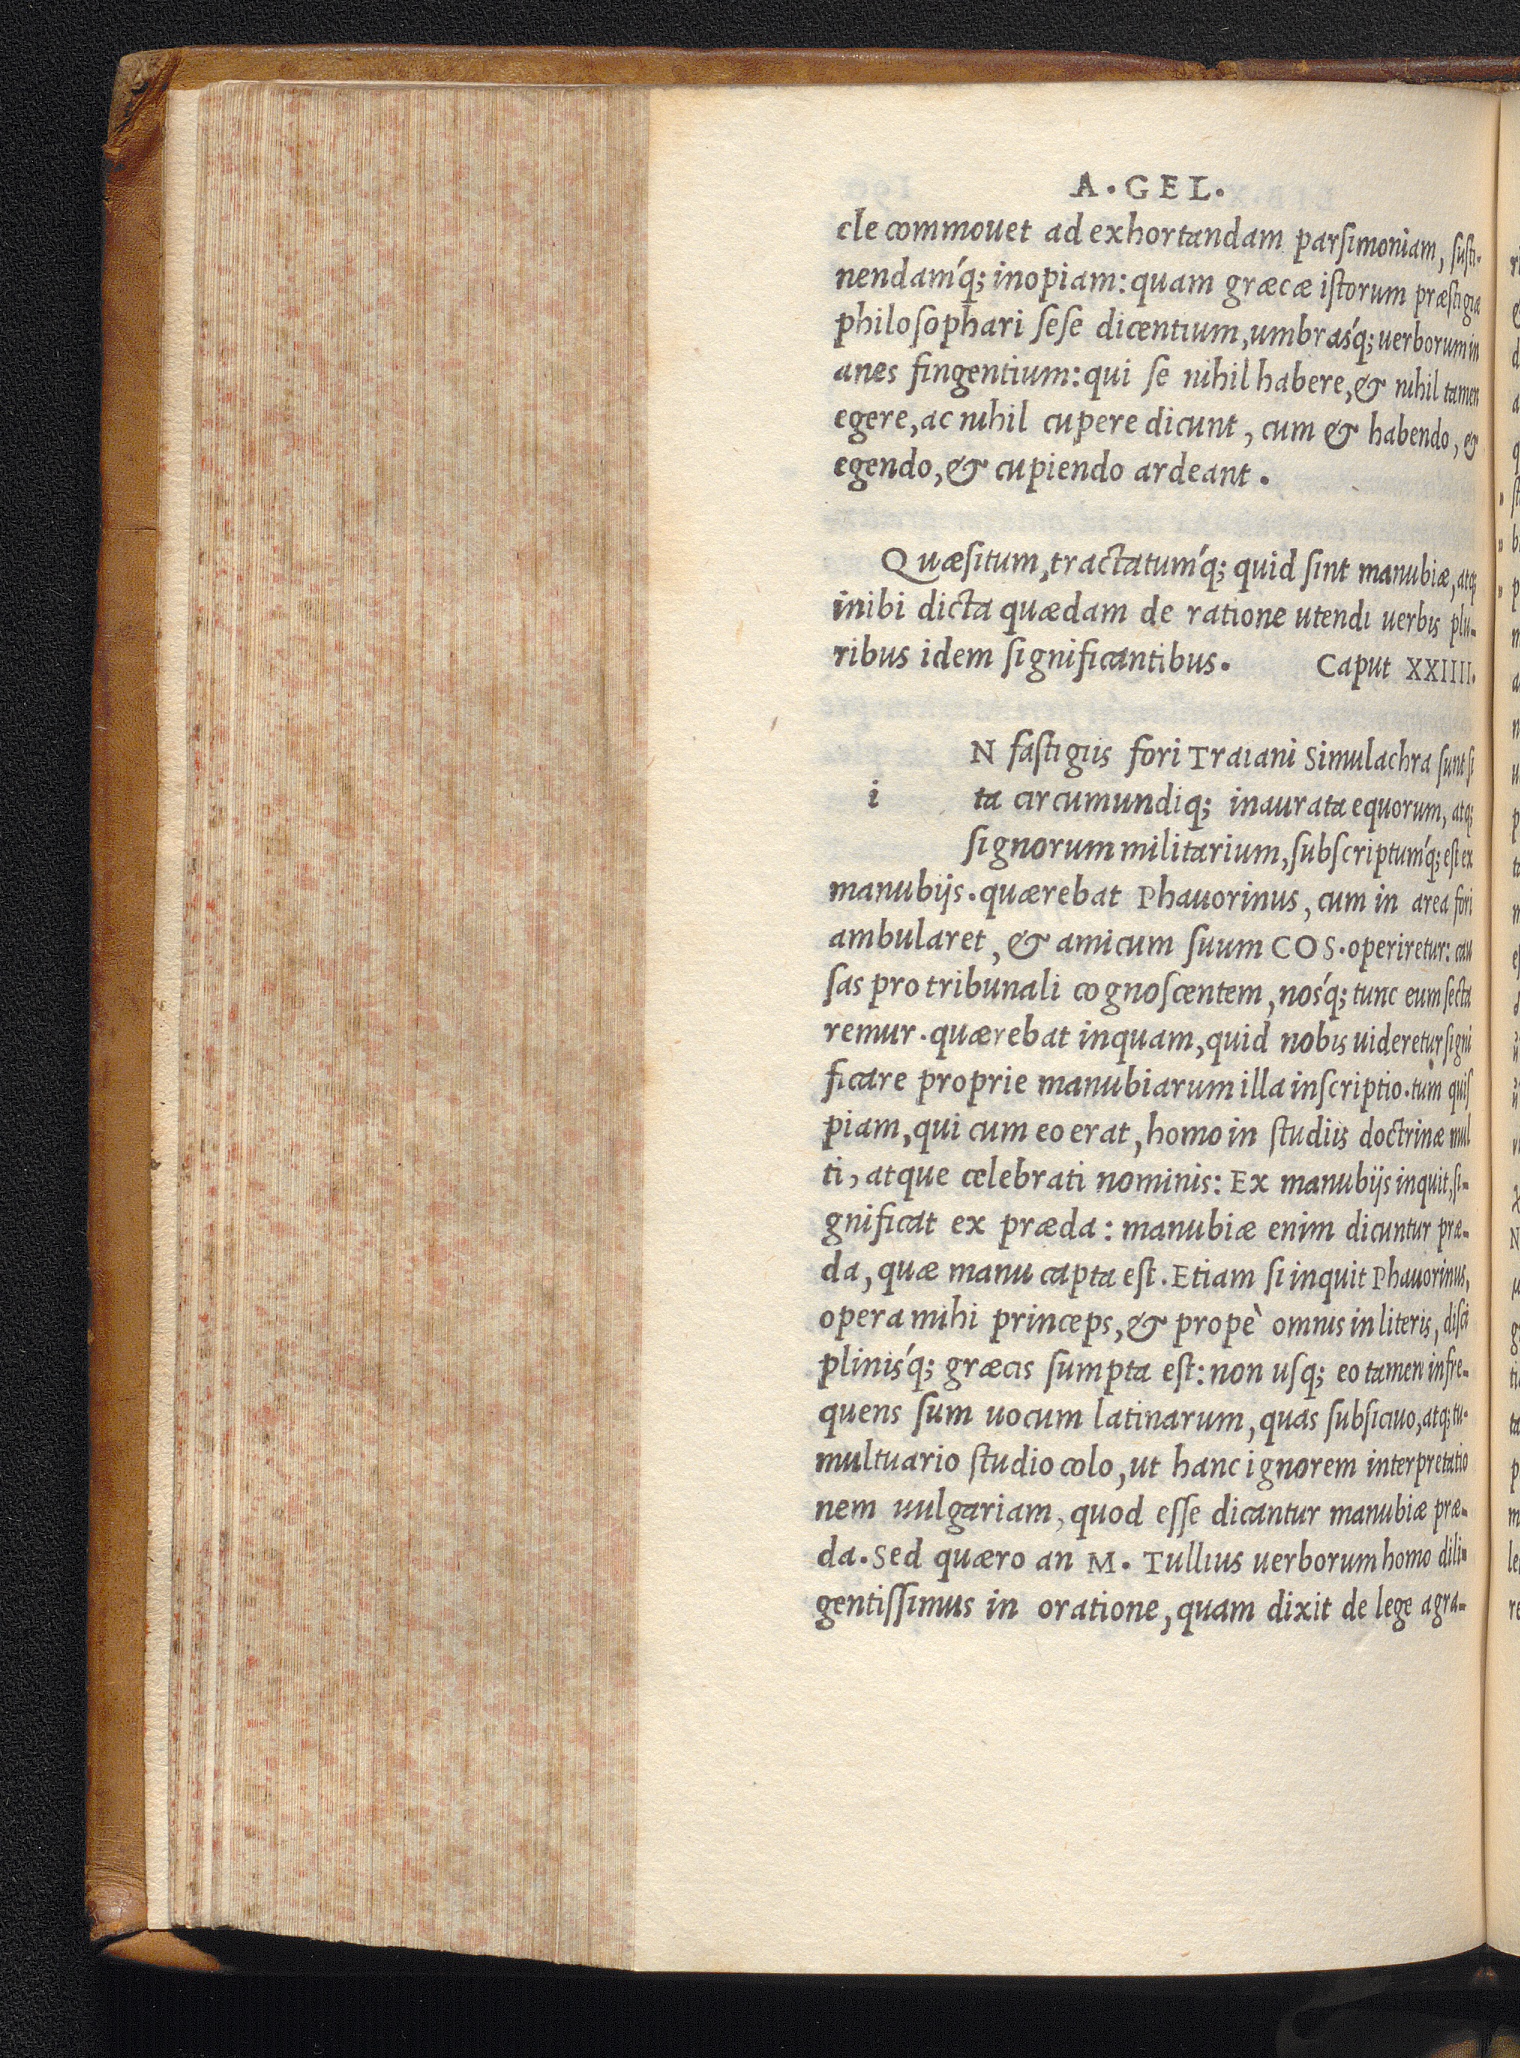 A. GEL.
cle commouet ad exhortandam parsimoniam, susti-
nendamq́; inopiam: quam græcæ istorum præstigiæ
philosophari sese dicentium, umbrasq́; uerborum in
anes fingentium: qui se nihil habere, & nihil tamen
egere, ac nihil cupere dicunt, cum & habendo, &
egendo, & cupiendo ardeant.
Quæsitum, tractatumq́; quid sint manubiæ, atq;
inibi dicta quædam de ratione utendi uerbis plu-
ribus idem significantibus. Caput XXIIII.
N fastigiis fori Traiani Simulachra sunt si
i ta circumundiq; inaurata equorum, atq;
signorum militarium, subscriptumq́; est ex
manubijs. quærebat Phauorinus, cum in area fori
ambularet, & amicum suum COS. operiretur: cau
sas pro tribunali cognoscentem, nosq́; tunc eum secta
remur. quærebat inquam, quid nobis uideretur signi
ficare proprie manubiarum illa inscriptio. tum quis
piam, qui cum eo erat, homo in studiis doctrinæ mul
ti, atque celebrati nominis: Ex manubijs inquit, si-
gnificat ex præda: manubiæ enim dicuntur præ-
da, quæ manu capta est. Etiam si inquit Phauorinus,
opera mihi princeps, & propè omnis in literis, disci
plinisq́; græcis sumpta est: non usq; eo tamen infre-
quens sum uocum latinarum, quas subsiciuo, atq; tu-
multuario studio colo, ut hanc ignorem interpretatio
nem uulgariam, quod esse dicantur manubiæ præ-
da. Sed quæro an M. Tullius uerborum homo dili-
gentissimus in oratione, quam dixit de lege agra-